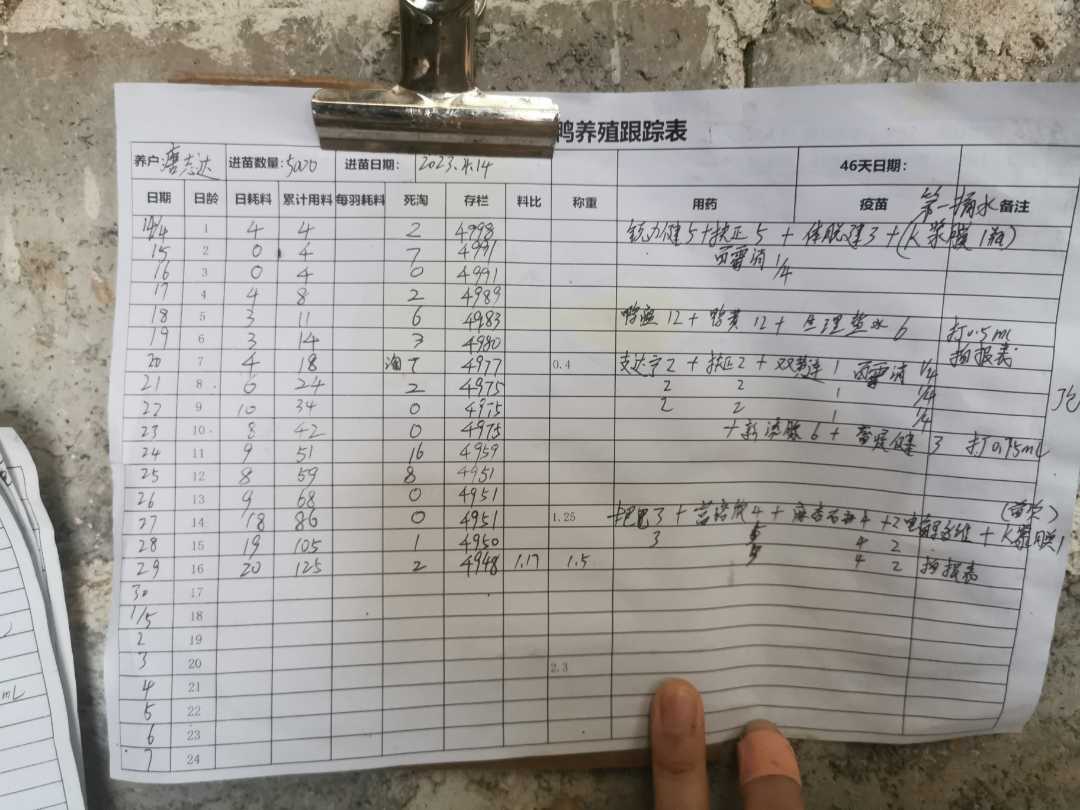 鸭养殖跟踪表
养户: 唐志达 进苗数量: 5000 进苗日期: 2023.4.14 46天日期:
日期 日龄 日耗料 累计用料 每羽耗料 死淘 存栏 料比 称重 用药 疫苗 备注
第一桶水
14/4 1 4 4 2 4998 5+扶正5+ 3+(K 1瓶)
15 2 0 4 7 4991 西雷消 1/4
16 3 0 4 0 4991
17 4 4 8 2 4989
18 5 3 11 6 4983 12+ 12+生理盐水6 打0.5mL
19 6 3 14 3 4980 拍报表
20 7 4 18 淘7 4977 0.4 支达宁2+扶正2+双黄连1 西雷消 1/4
21 8 6 24 2 4975 2 2 1 1/4
22 9 10 34 0 4975 2 2 1 1/4
23 10 8 42 0 4975 + 6+ 3 打0.75mL
24 11 9 51 16 4959
25 12 8 59 8 4951
26 13 9 68 0 4951
27 14 18 86 0 4951 1.25 3+ 4+ 4+2 +K
28 15 19 105 1 4950 3 5 4 2 1
29 16 20 125 2 4948 1.17 1.5 5 4 2 拍报表
30 17
1/5 18
2 19
3 20 2.3
4 21
5 22
6 23
7 24
mL